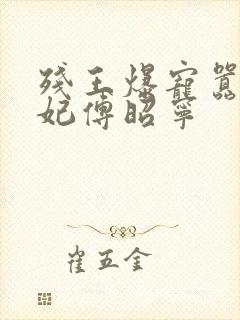 残王爆宠嚣
妃傅昭宁
崔五金